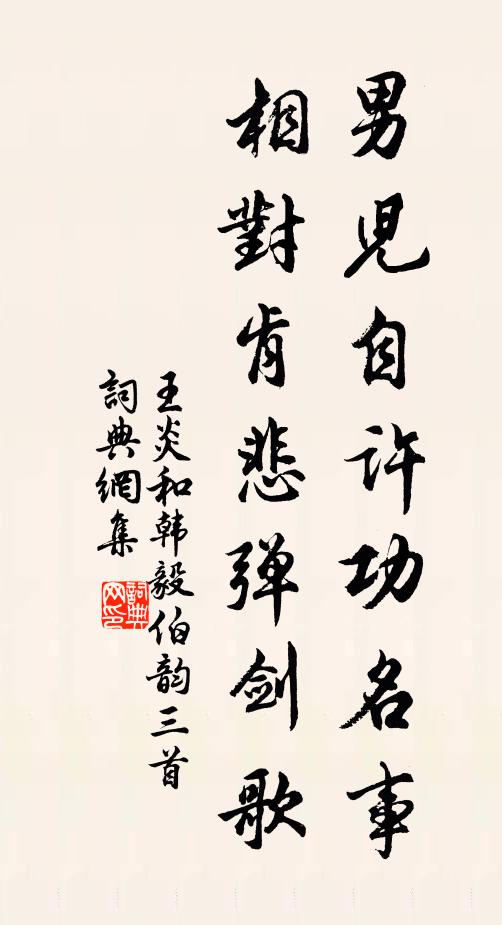 男兒自许功名事
相對肯悲弹剑歌
王炎和韩毅伯韵三首
詞典網集
詞典
网印